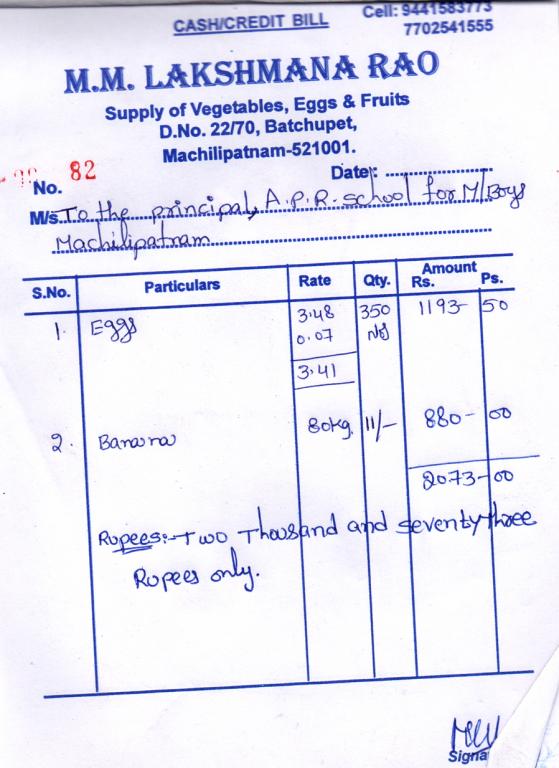 CASH/CREDIT BILL
Cell: 9441583773
7702541555
M.M. LAKSHMANA RAO
Supply of Vegetables, Eggs & Fruits
D.No. 22/70, Batchupet,
Machilipatnam-521001.
No. 82
Date:
M/s. To the principal, A.P.R. school for M/Boys
Machilipatnam
S.No. Particulars Rate Qty. Amount
Rs. Ps.
1. Eggs 3.48 350 1193- 50
0.07 Nos
3.41
2. Banana 80kg 11/- 880- 00
2073-00
Rupees:- Two Thousand and seventy three
Rupees only.
Signa